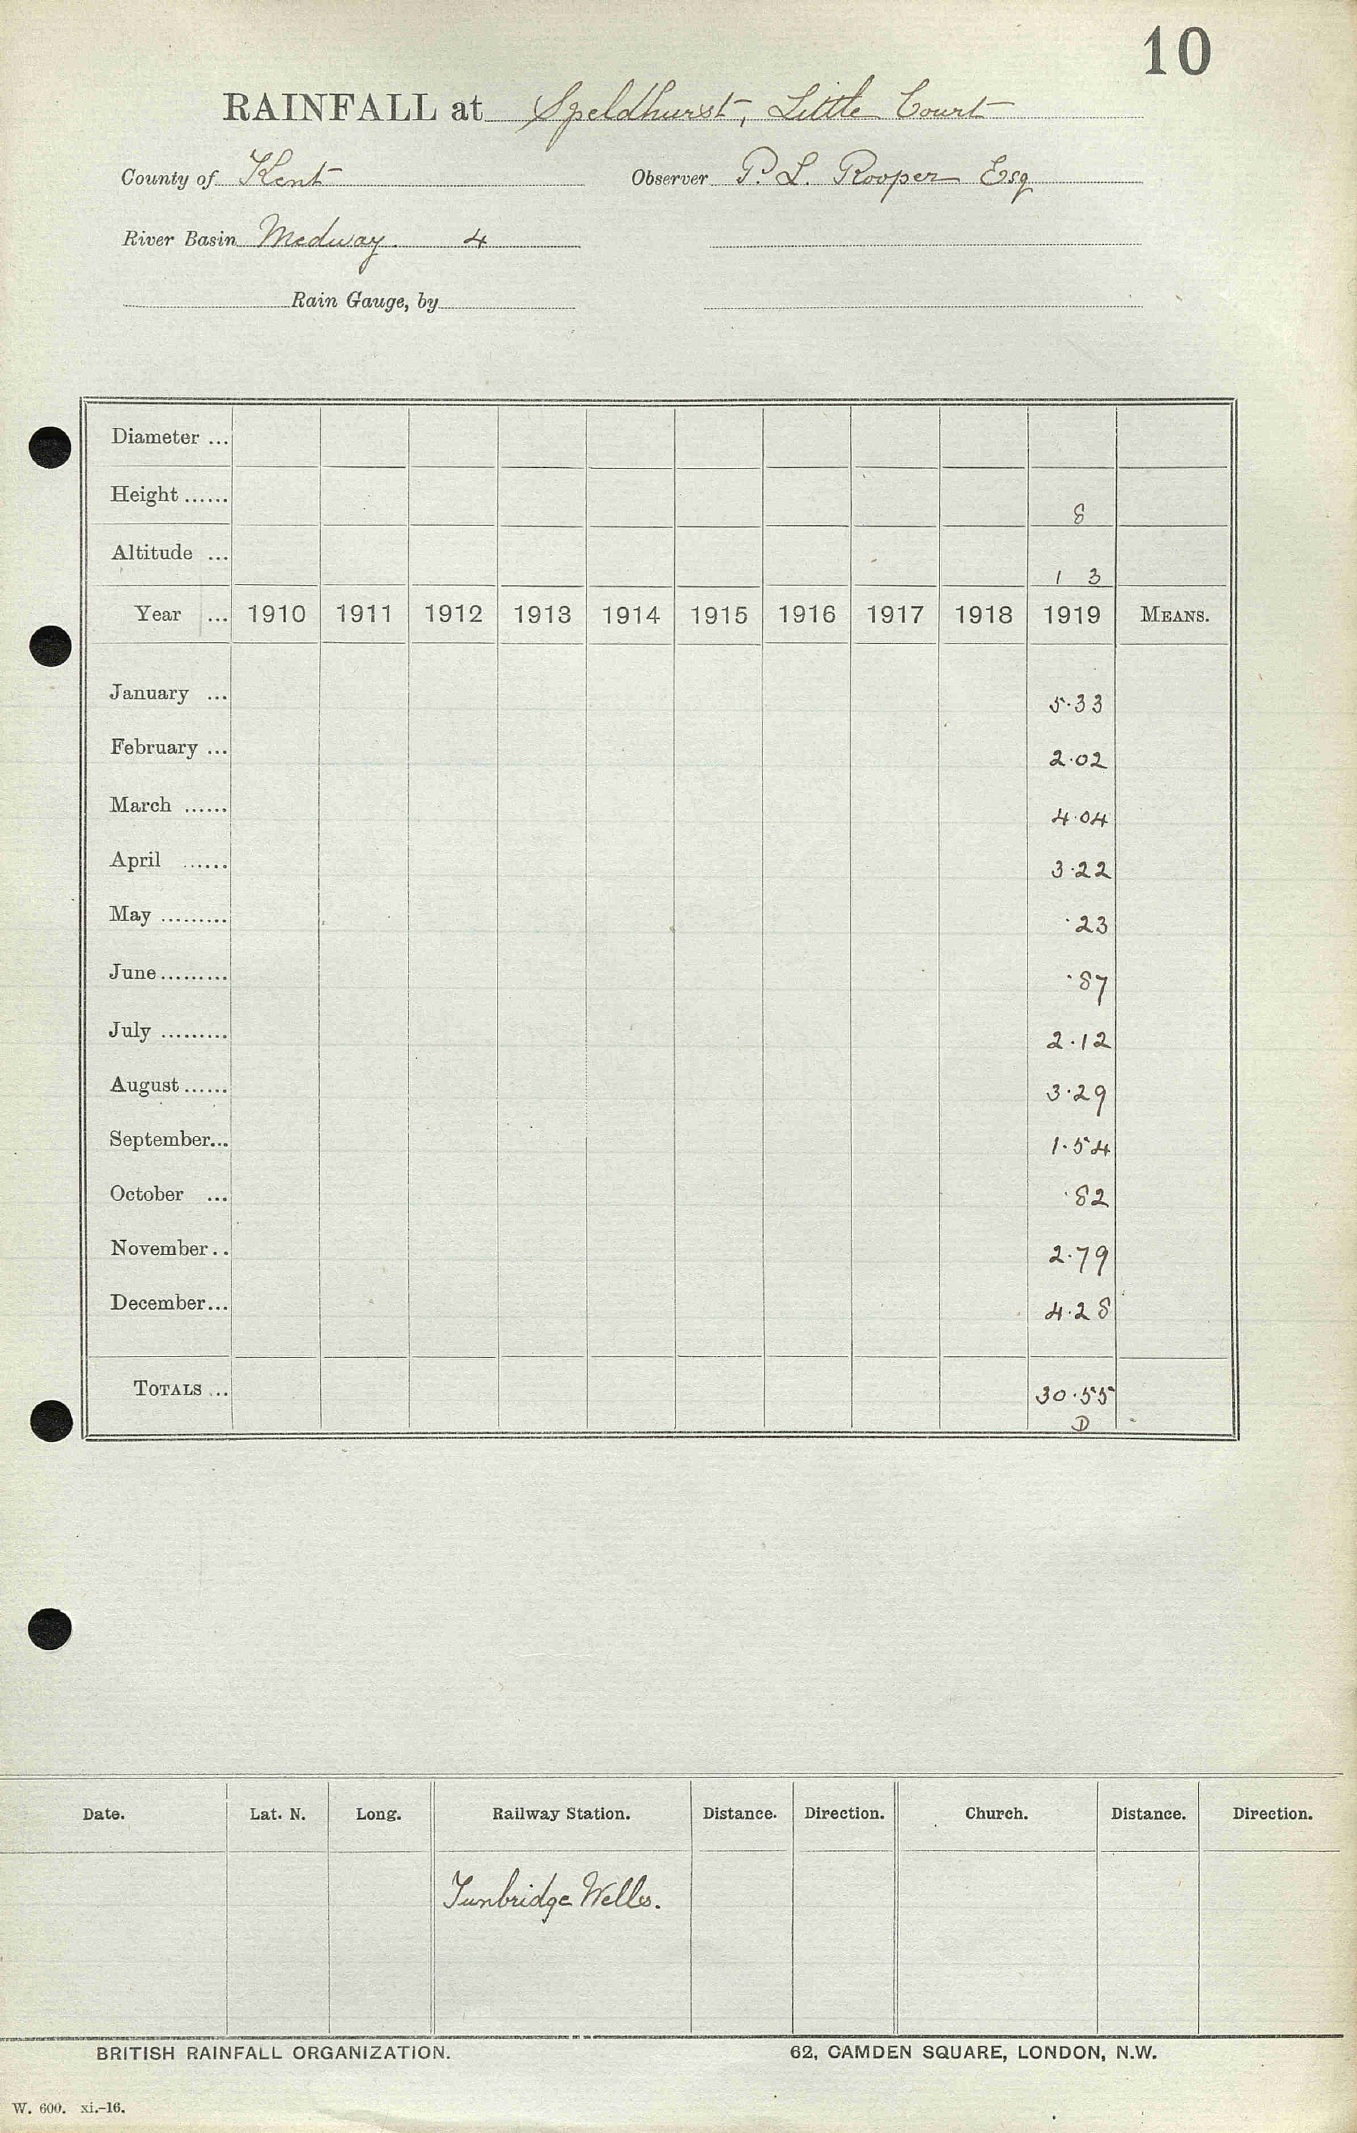 10
RAINFALL at Speldhurst, Little Court
County of Kent Observer P. L. Rooper Esq
River Basin Medway. 4
Rain Gauge, by
Diameter ...
Height ...... 8
Altitude ... 1 3
Year ... 1910 1911 1912 1913 1914 1915 1916 1917 1918 1919 MEANS.
January ... 5.33
February ... 2.02
March ...... 4.04
April ...... 3.22
May ......... .23
June ......... .87
July ......... 2.12
August ...... 3.29
September... 1.54
October ... .82
November.. 2.79
December... 4.28
TOTALS ... 30.55
D
Date. Lat. N. Long. Railway Station. Distance. Direction. Church. Distance. Direction.
Tunbridge Wells.
BRITISH RAINFALL ORGANIZATION. 62, CAMDEN SQUARE, LONDON, N.W.
W. 600. xi.-16.